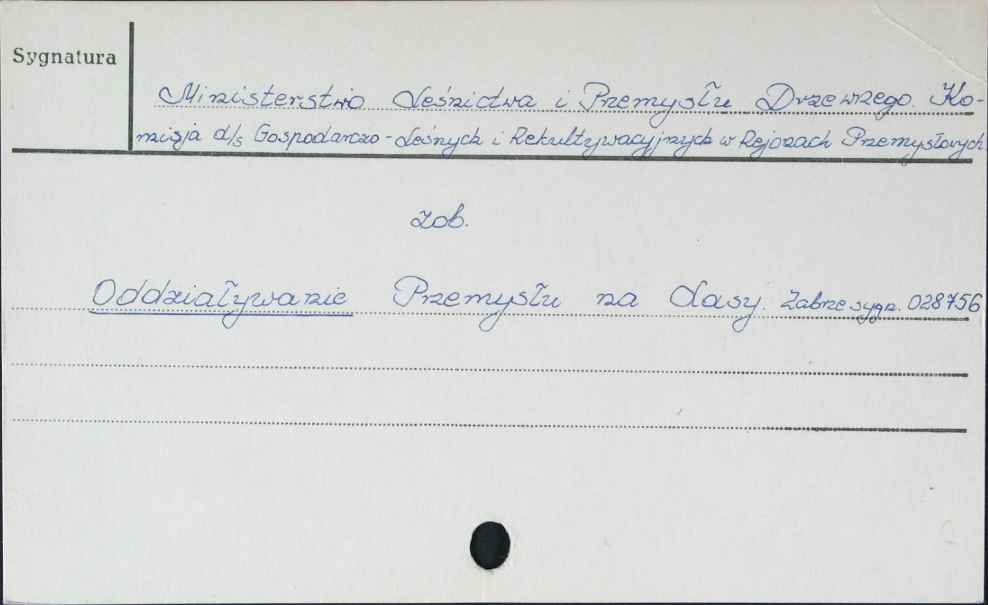 Sygnatura
Ministerstwo Leśnictwa i Przemysłu Drzewnego. Ko-
misja d/s Gospodarczo-Leśnych i Rekultywacyjnych w Rejonach Przemysłowych
zob.
Oddziaływanie Przemysłu na Lasy. Zabrze sygn. 028756